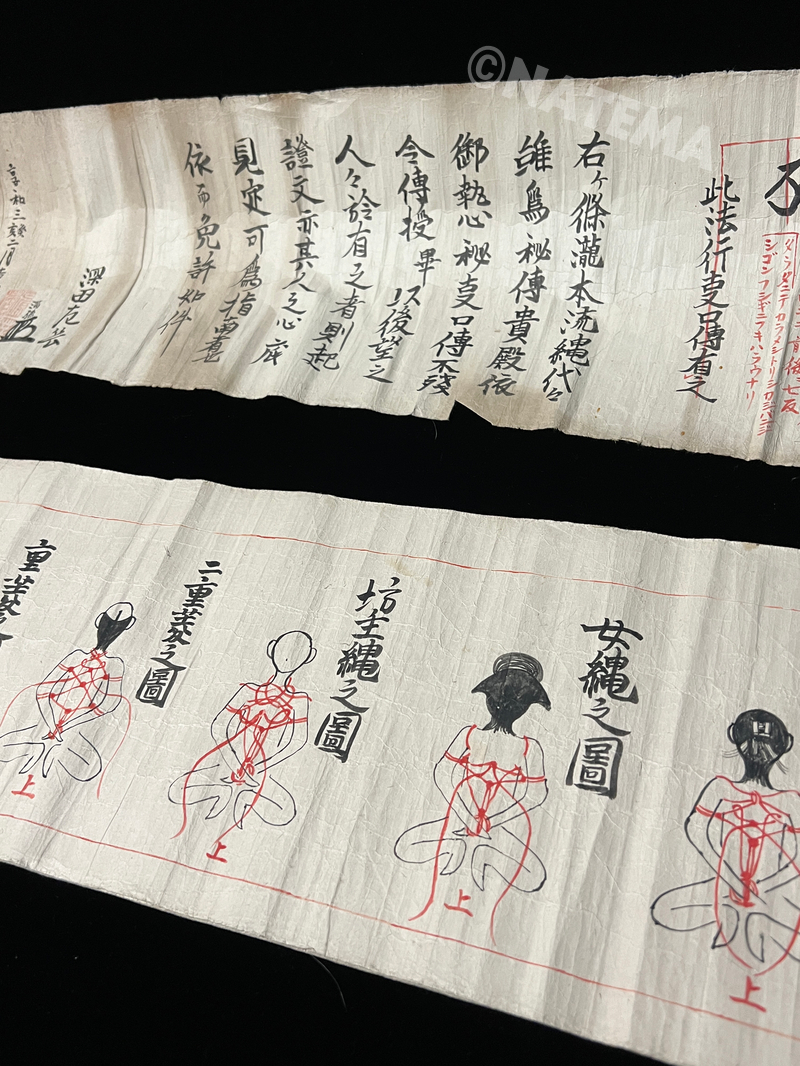 ©NATEMA
此法行叓口傳有之
右ヶ條瀧本流縄代々
雖爲秘傳貴殿依
御執心秘叓口傳不殘
令傳授畢以後望之
人々於有之者則起
證文亦其人之心底
見定可爲指南者
依而免許如件
享和三
深田
女縄之圖
上
坊主縄之圖
上
二重菱之圖
上
重菱
上